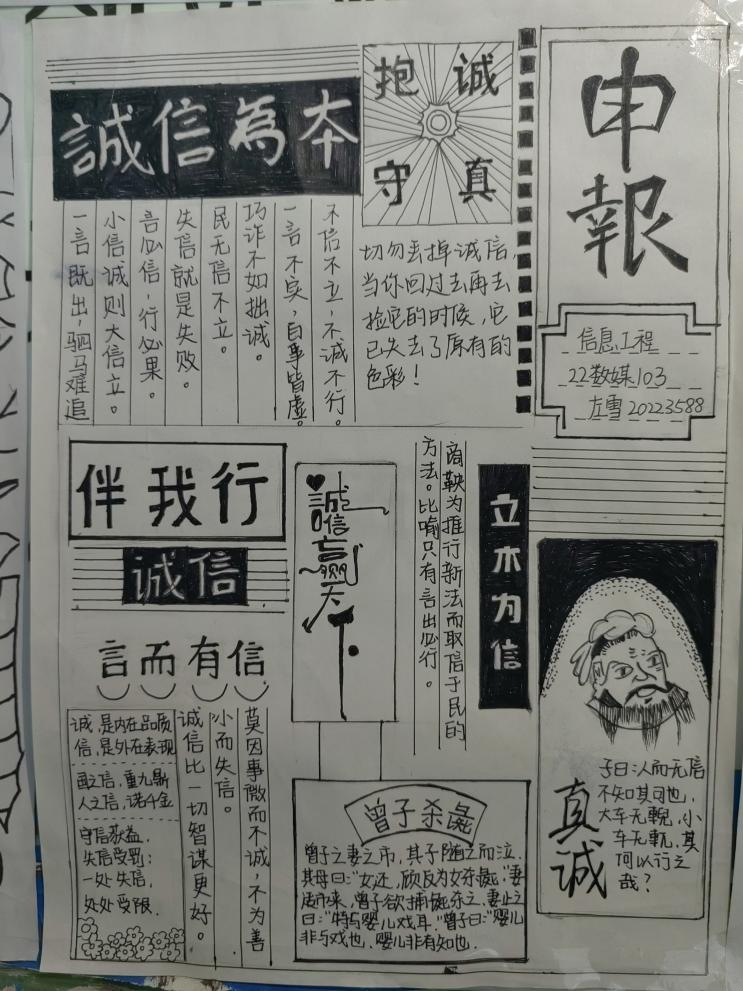 申報
信息工程
22数媒103
左雪 20223588
誠信為本
抱诚
守真
不信不立,不诚不行。
一言不实,百事皆虚。
巧诈不如拙诚。
民无信不立。
失信就是失败。
言必信,行必果。
小信诚则大信立。
一言既出,驷马难追
切勿丢掉诚信,
当你回过去再去
捡它的时候,它
已失去了原有的
色彩!
伴我行
诚信
言而有信
誠信贏天下
立木为信
商鞅为推行新法而取信于民的
方法。比喻只有言出必行。
诚,是内在品质
信,是外在表现
国之信,重九鼎
人之信,诺千金
守信获益,
失信受罚;
一处失信,
处处受限.
莫因事微而不诚,不为善
小而失信。
诚信比一切智谋更好。
曾子杀彘
曾子之妻之市,其子随之而泣.
其母曰:“女还,顾反为女杀彘.”妻
适市来,曾子欲捕彘杀之.妻止之
曰:“特与婴儿戏耳.”曾子曰:“婴儿
非与戏也,婴儿非有知也.
真诚
子曰:人而无信
不知其可也,
大车无輗,小
车无軏,其
何以行之
哉?